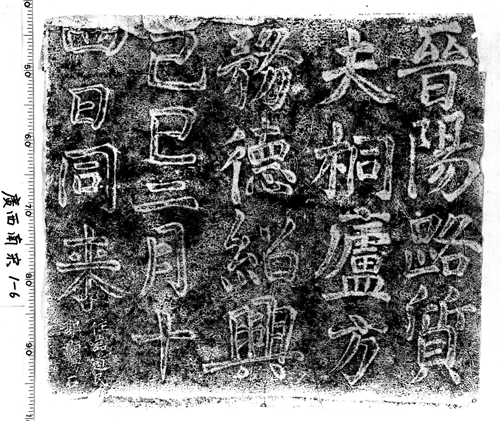 晉陽路質
夫桐廬方
務德紹興
己巳二月十
四日同来
廣西南宋 1-6